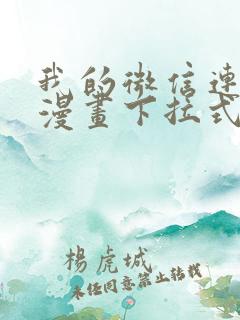 我的微信连
漫畫下拉式
楊虎城
未经同意禁止转载